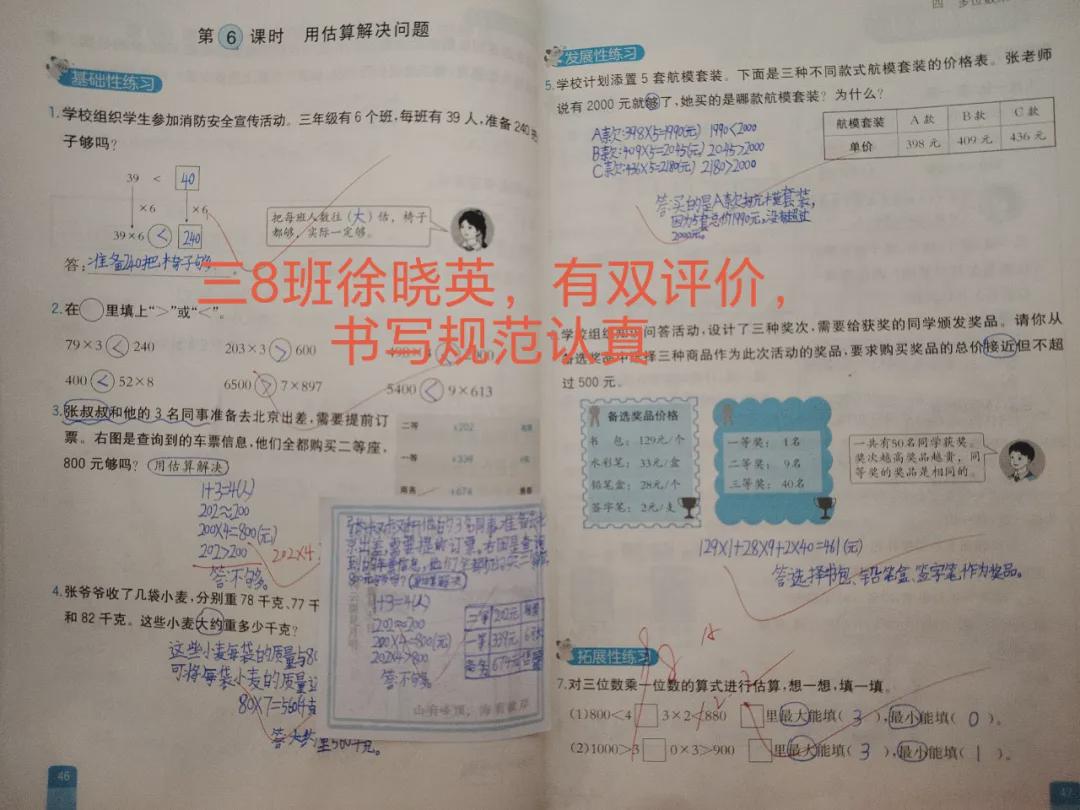 第6课时 用估算解决问题
基础性练习
1.学校组织学生参加消防安全宣传活动。三年级有6个班,每班有39人,准备240把
子够吗?
39 < 40
×6 ×6
39×6 < 240
把每班人数往(大)估,椅子
都够,实际一定够。
答:准备240把椅子够。
2.在○里填上“>”或“<”。
79×3 < 240 203×3 > 600
400 < 52×8 6500 > 7×897 5400 < 9×613
3.张叔叔和他的3名同事准备去北京出差,需要提前订
票。右图是查询到的车票信息,他们全都购买二等座,
800元够吗?(用估算解决)
二等 ¥202
一等 ¥339
商务 ¥674
1+3=4(人)
202≈200
200×4=800(元)
202>200
202×4
答:不够。
1+3=4(人)
202≈200
200×4=800(元)
202×4>800
答:不够。
二等 202元
一等 339元
商务 674元
4.张爷爷收了几袋小麦,分别重78千克、77千
和82千克。这些小麦大约重多少千克?
这些小麦每袋的质量与80
可将每袋小麦的质量
80×7=560(千克
46
四 多位数
发展性练习
5.学校计划添置5套航模套装。下面是三种不同款式航模套装的价格表。张老师
说有2000元就够了,她买的是哪款航模套装?为什么?
航模套装 A款 B款 C款
单价 398元 409元 436元
A款:398×5=1990(元) 1990<2000
B款:409×5=2045(元) 2045>2000
C款:436×5=2180(元) 2180>2000
答:买的是A款航模套装,
因为5套总价1990元,没有超过
2000元。
三8班徐晓英，有双评价，
书写规范认真
学校组织 问答活动,设计了三种奖次,需要给获奖的同学颁发奖品。请你从
备选奖品中选择三种商品作为此次活动的奖品,要求购买奖品的总价接近但不超
过500元。
备选奖品价格
书包:129元/个
水彩笔:33元/盒
铅笔盒:28元/个
签字笔:2元/支
一等奖:1名
二等奖:9名
三等奖:40名
一共有50名同学获奖。
奖次越高奖品越贵,同
等奖的奖品是相同的。
129×1+28×9+2×40=461(元)
答:选择书包、铅笔盒、签字笔作为奖品。
拓展性练习
7.对三位数乘一位数的算式进行估算,想一想,填一填。
(1)800<4□3×2<880 □里最大能填(3),最小能填(0)。
(2)1000>3□0×3>900 □里最大能填(3),最小能填(1)。
47